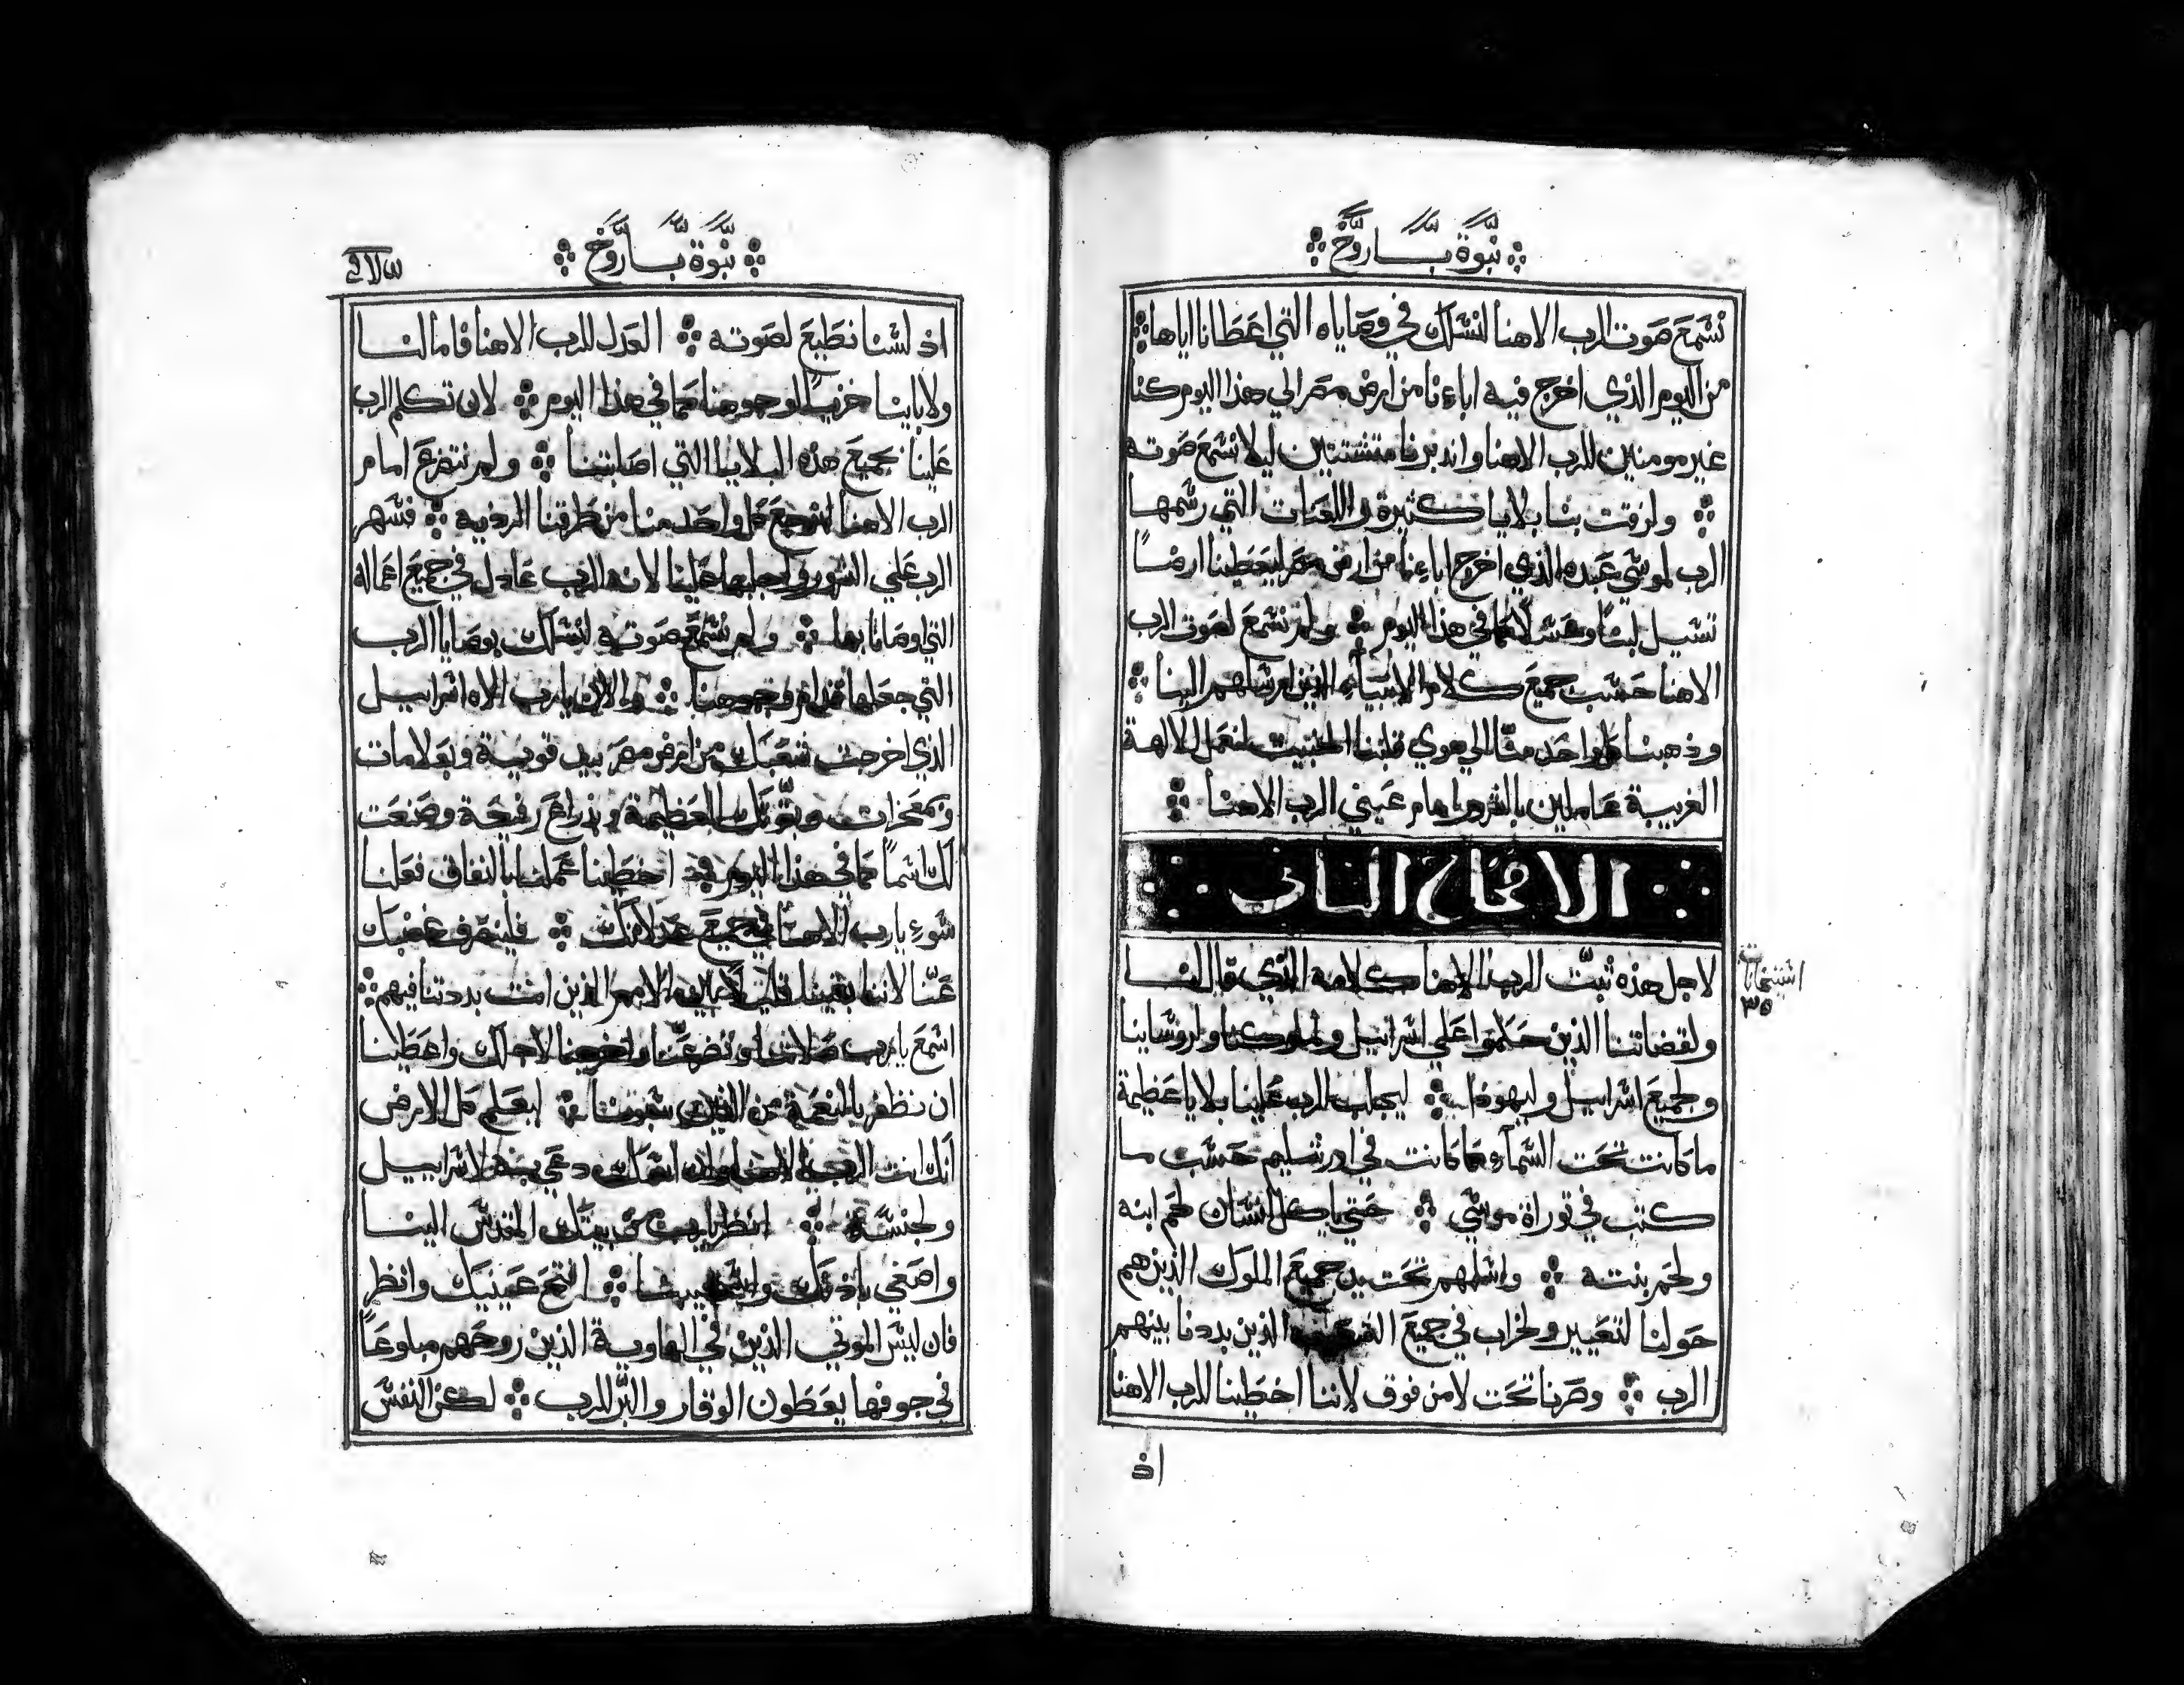 نبوة بـاروخ
نسمع صوت الرب الاهنا لنسلك في وصاياه التي اعطانا اياها
من اليوم الذي اخرج فيه اباءنا من ارض مصر الي هذا اليوم كنا
غير مومنين للرب الاهنا واندبرنا متشتتين ليلا نسمع صوته
ولزقت بنا بلايا كثيرة واللعنات التي رسمها
الرب لموسى عبده الذي اخرج اباءنا من ارض مصر ليعطينا ارضًا
تسيل لبنًا وعسلًا كما في هذا اليوم ولم نسمع لصوت الرب
الاهنا حسب جميع كلام الانبيآء الذين ارسلهم الينا
وذهبنا كل واحد منّا الي هوي قلبنا الخبيث لنعمل للالهة
الغريبة عاملين بالشرور امام عيني الرب الاهنا
الاصحاح الثاني
لاجل هذه ثبّت الرب الاهنا كلامه الذي قال لنا
ولقضاتنا الذين حكموا علي اسرائيل ولملوكنا ولروسائنا
ولجميع اسراييل وليهوذا ليجلب الرب علينا بلايا عظيمة
ما كانت تحت السمآء كما كانت في اورشليم حسب ما
كتب في توراة موسي حتي ياكل انسان لحم ابنه
ولحم بنته واسلمهم تحت يد جميع الملوك الذين هم
حولنا لتعيير ولخراب في جميع الذين بددنا بينهم
الرب وصرنا تحت لا من فوق لاننا اخطينا للرب الاهنا
اذ
استيخانات
٣٥
نبوة بـاروخ
اذ لسنا نطيع لصوته العدل للرب الاهنا فاما لنا
ولاباينا خزيًا لوجوهنا كما في هذا اليوم لان تكلم الرب
علينا بجميع هذه البلايا التي اصابتنا ولم نتضرع امام
الرب الاهنا لنرجع كل واحد منا من طرقنا الرذيه فسهر
الرب علي الشرور وجلبها علينا لانه الرب عادل في جميع اعماله
التي اوصانا بها ولم نسمع صوته لنسلك بوصايا الرب
التي جعلها قدام وجوهنا والان يارب الاه اسراييل
الذي اخرجت شعبك من ارض مصر بيد قوية وبعلامات
وبمعجزات وبقوتك العظيمة وبذراع رفيعة وصنعت
لك اسمًا كما في هذا اليوم قد اخطينا عملنا بالنفاق فعلنا
سوء يارب الاهنا في جميع عدلاتك فلينصرف غضبك
عنّا لاننا بقينا قليلا بين الامم الذين انت بددتنا فيهم
اسمع يارب صلاتنا وتضرعنا واخرجنا لاجلك واعطينا
ان نظفر بالنعمة من الذين سبونا ليعلم كل الارض
انك انت الرب الاهنا وان اسمك دعي به اسراييل
ولجنسه انظر يارب من بيتك المقدس الينا
واصغي باذنك واستجيبنا افتح عينيك وانظر
فان ليس الموتي الذين في الهاوية الذين روحهم مبلوعًا
في جوفها يعطون الوقار والبّر للرب لكن النفس